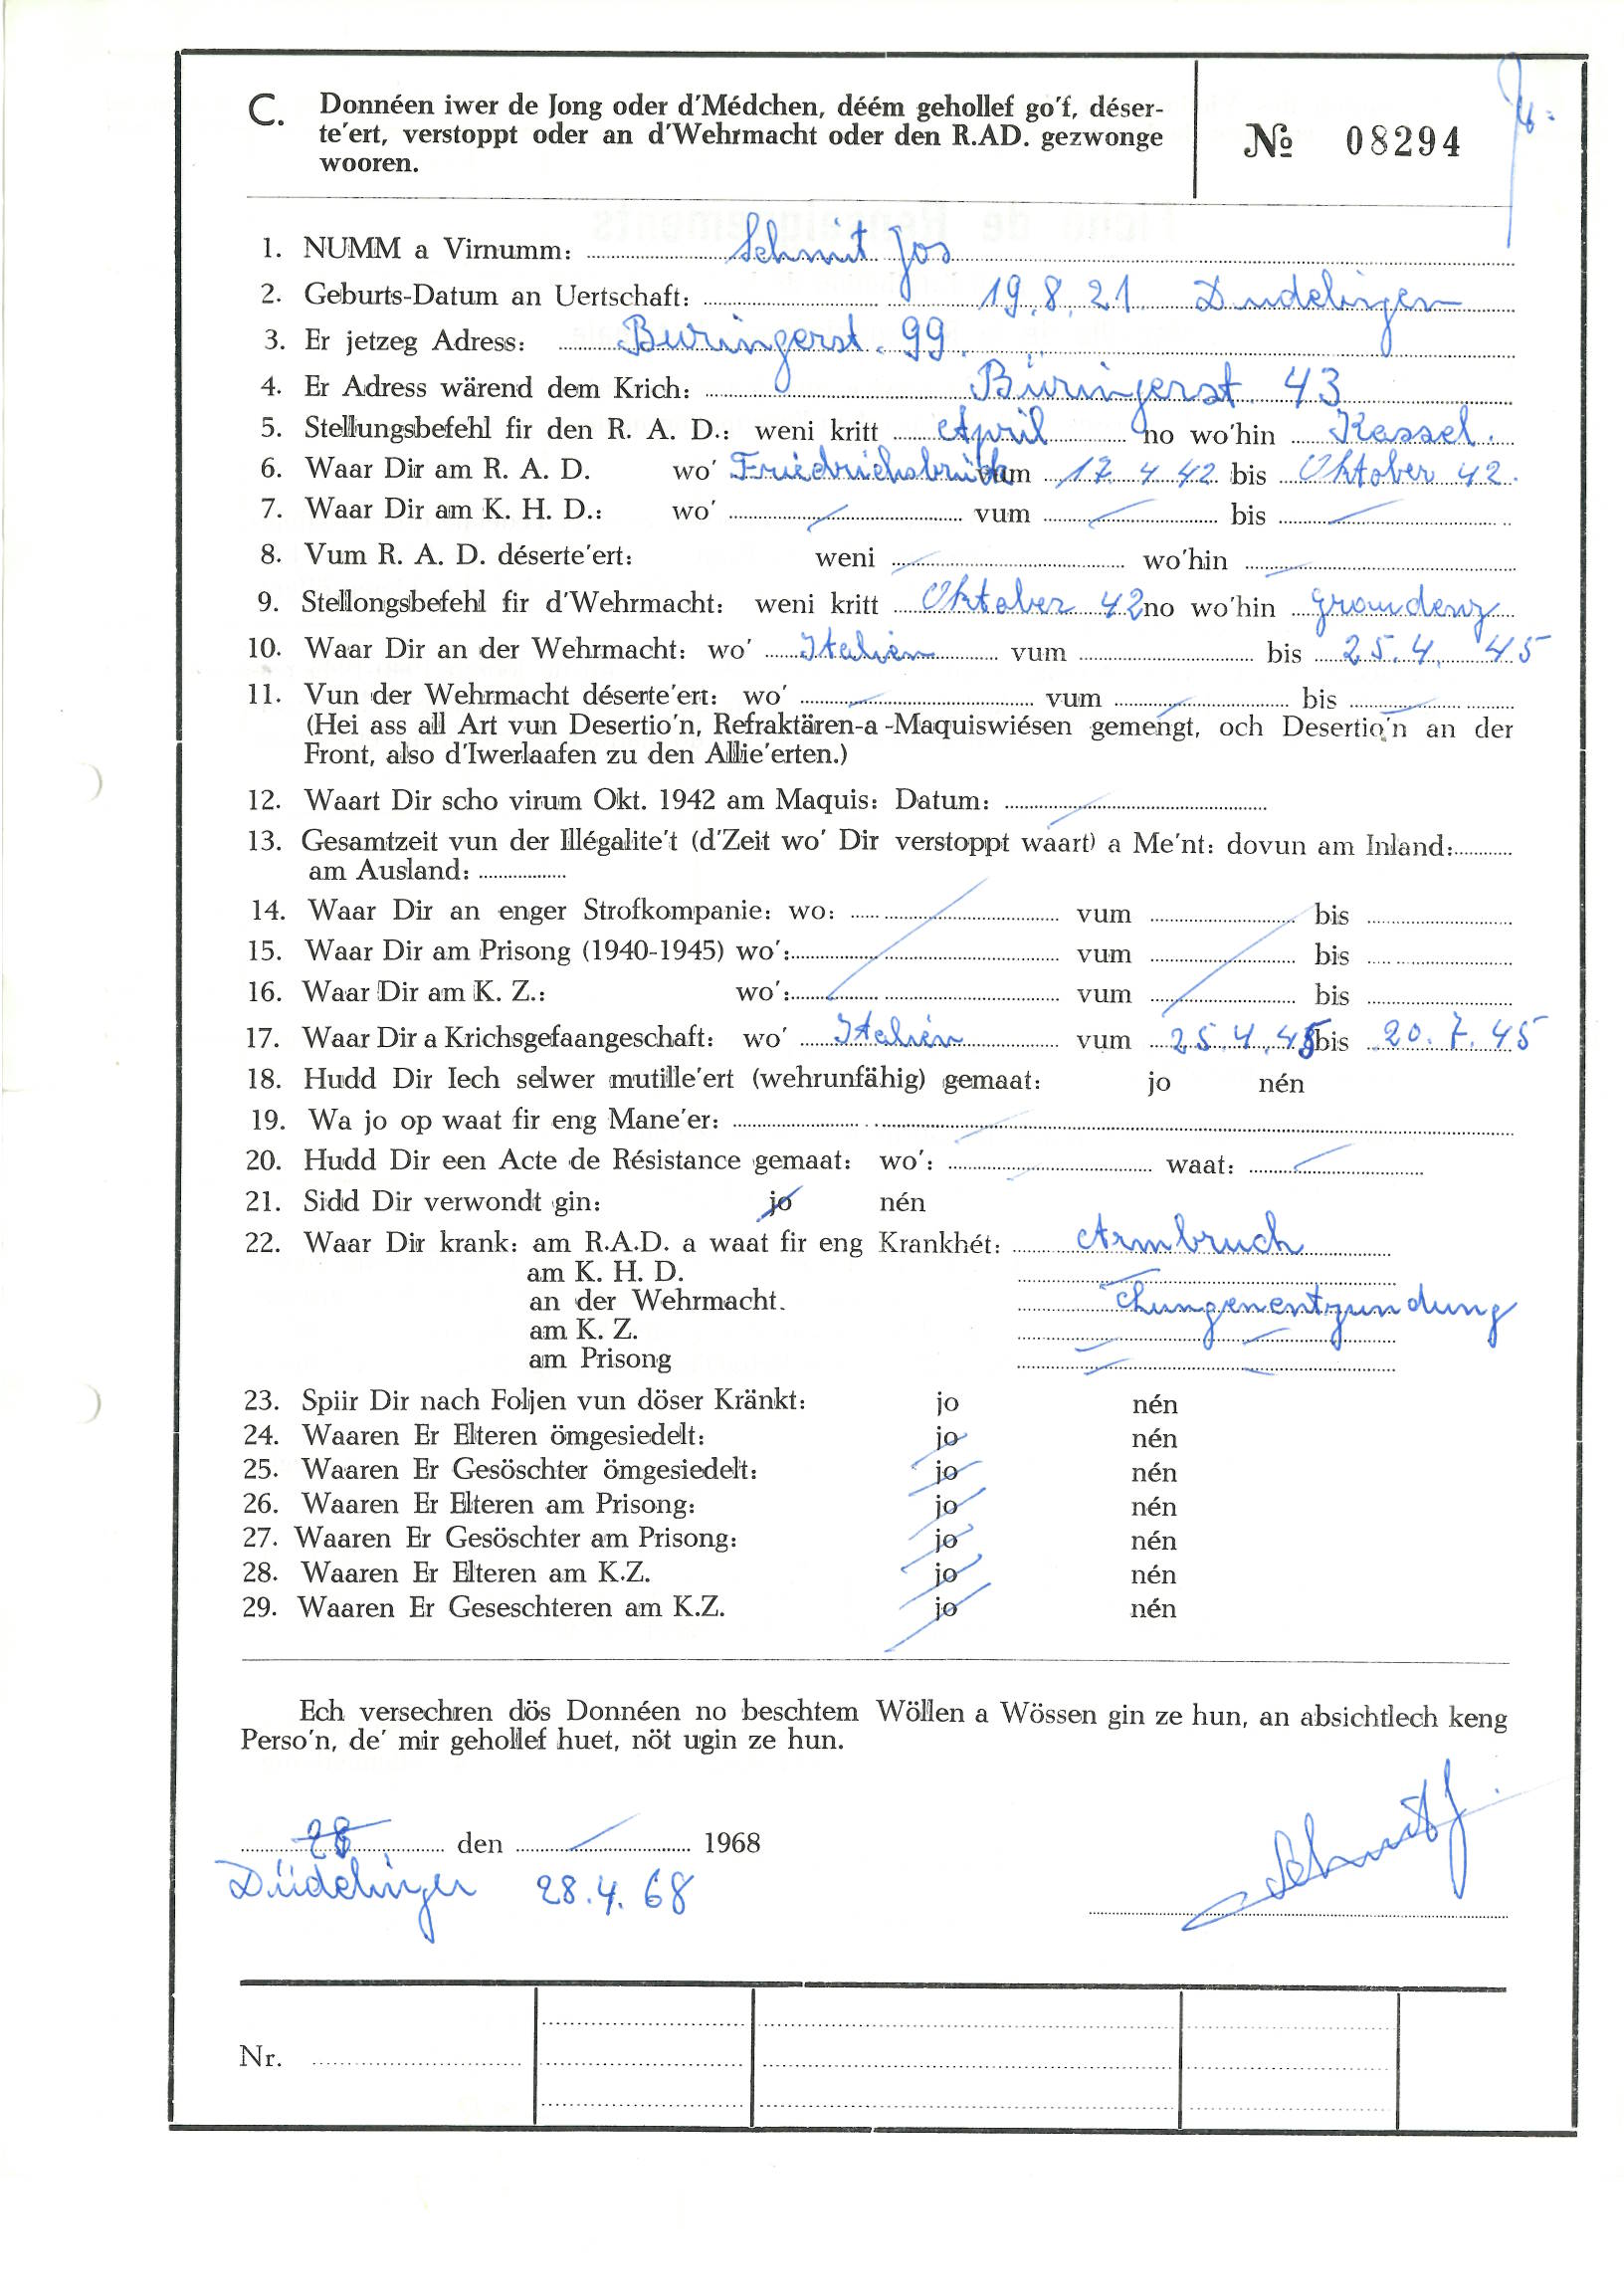 C. Donnéen iwer de Jong oder d'Médchen, déém gehollef go'f, déser-
te'ert, verstoppt oder an d'Wehrmacht oder den R.AD. gezwonge
wooren.
№ 08294
1. NUMM a Virnumm: Schmit Jos
2. Geburts-Datum an Uertschaft: 19.8.21. Dudelingen
3. Er jetzeg Adress: Buringerst. 99.
4. Er Adress wärend dem Krich: Büringerst. 43
5. Stellungsbefehl fir den R. A. D.: weni kritt April no wo'hin Kassel.
6. Waar Dir am R. A. D. wo' Friedrichsbrück vum 17.4.42 bis Oktober 42.
7. Waar Dir am K. H. D.: wo' vum bis
8. Vum R. A. D. déserte'ert: weni wo'hin
9. Stellongsbefehl fir d'Wehrmacht: weni kritt Oktober 42 no wo'hin Graudenz
10. Waar Dir an der Wehrmacht: wo' Italien vum bis 25.4.45
11. Vun der Wehrmacht déserte'ert: wo' vum bis
(Hei ass all Art vun Desertio'n, Refraktären-a-Maquiswiésen gemengt, och Desertio'n an der
Front, also d'Iwerlaafen zu den Allie'erten.)
12. Waart Dir scho virum Okt. 1942 am Maquis: Datum:
13. Gesamtzeit vun der Illégalite't (d'Zeit wo' Dir verstoppt waart) a Me'nt: dovun am Inland:
am Ausland:
14. Waar Dir an enger Strofkompanie: wo: vum bis
15. Waar Dir am Prisong (1940-1945) wo': vum bis
16. Waar Dir am K. Z.: wo': vum bis
17. Waar Dir a Krichsgefaangeschaft: wo' Italien vum 25.4.45 bis 20.7.45
18. Hudd Dir Iech selwer mutille'ert (wehrunfähig) gemaat: jo nén
19. Wa jo op waat fir eng Mane'er:
20. Hudd Dir een Acte de Résistance gemaat: wo': waat:
21. Sidd Dir verwondt gin: jo nén
22. Waar Dir krank: am R.A.D. a waat fir eng Krankhét: Armbruch
am K. H. D.
an der Wehrmacht. Lungenentzundung
am K. Z.
am Prisong
23. Spiir Dir nach Foljen vun döser Kränkt: jo nén
24. Waaren Er Elteren ömgesiedelt: jo nén
25. Waaren Er Gesöschter ömgesiedelt: jo nén
26. Waaren Er Elteren am Prisong: jo nén
27. Waaren Er Gesöschter am Prisong: jo nén
28. Waaren Er Elteren am K.Z. jo nén
29. Waaren Er Geseschteren am K.Z. jo nén
Ech versechren dös Donnéen no beschtem Wöllen a Wössen gin ze hun, an absichtlech keng
Perso'n, de' mir gehollef huet, nöt ugin ze hun.
28 den 1968
Düdelingen 28.4.68
Schmit J.
Nr.